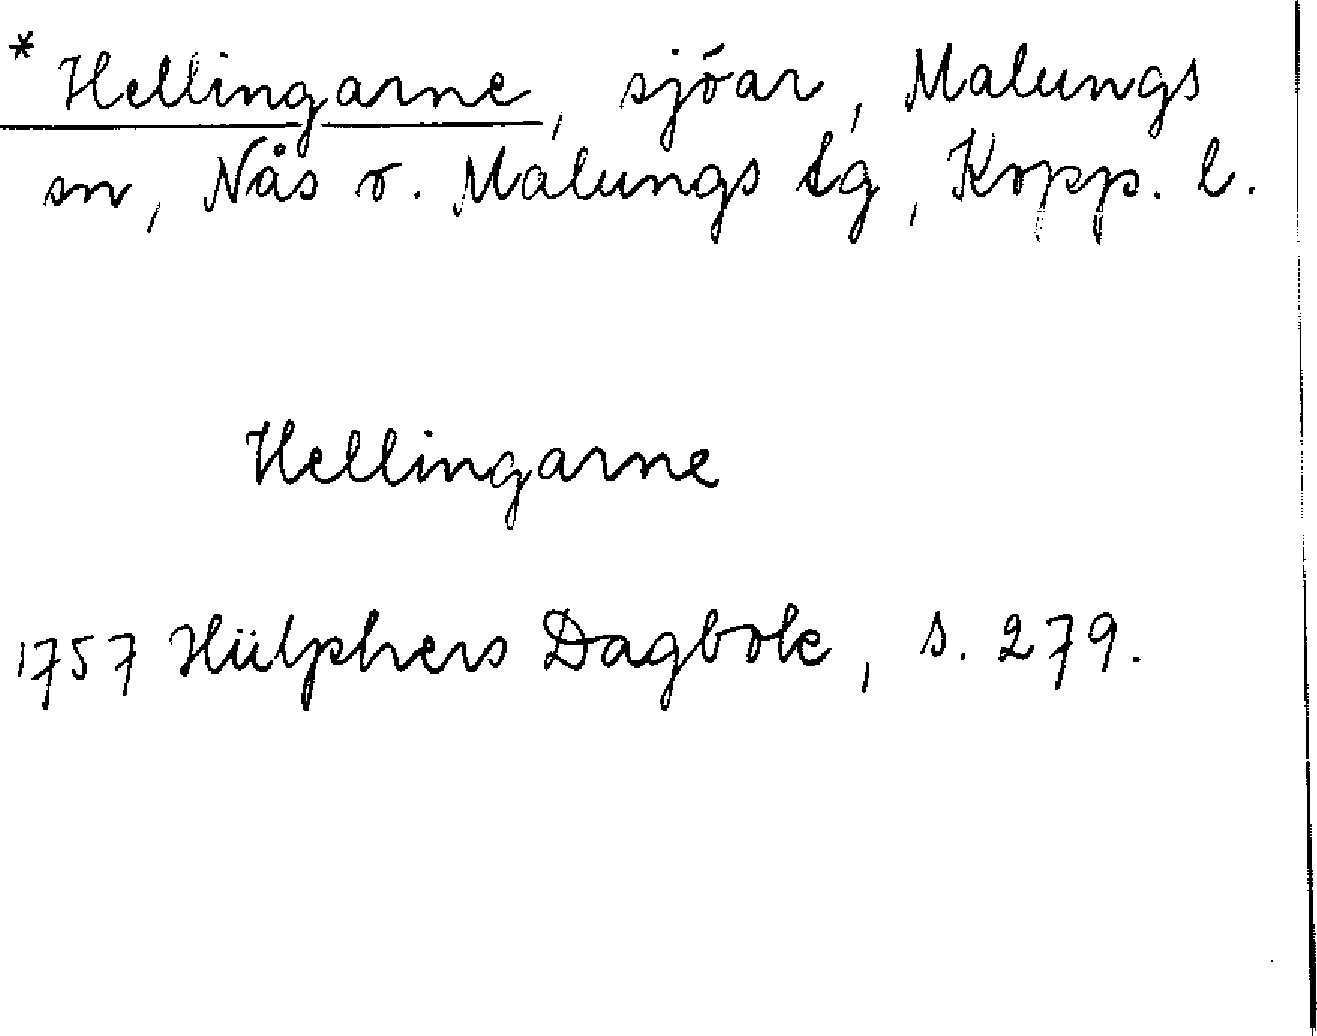 * Hellingarne, sjöar, Malungs
sn, Nås o. Malungs tg, Kopp. l.
Hellingarne
1757 Hülphers Dagbok, s. 279.